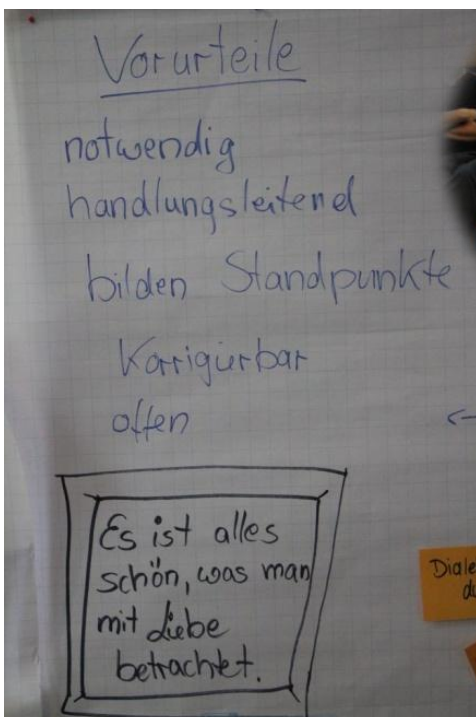 Vorurteile
notwendig
handlungsleitend
bilden Standpunkte
Korrigierbar
offen
←
Es ist alles
schön, was man
mit Liebe
betrachtet.